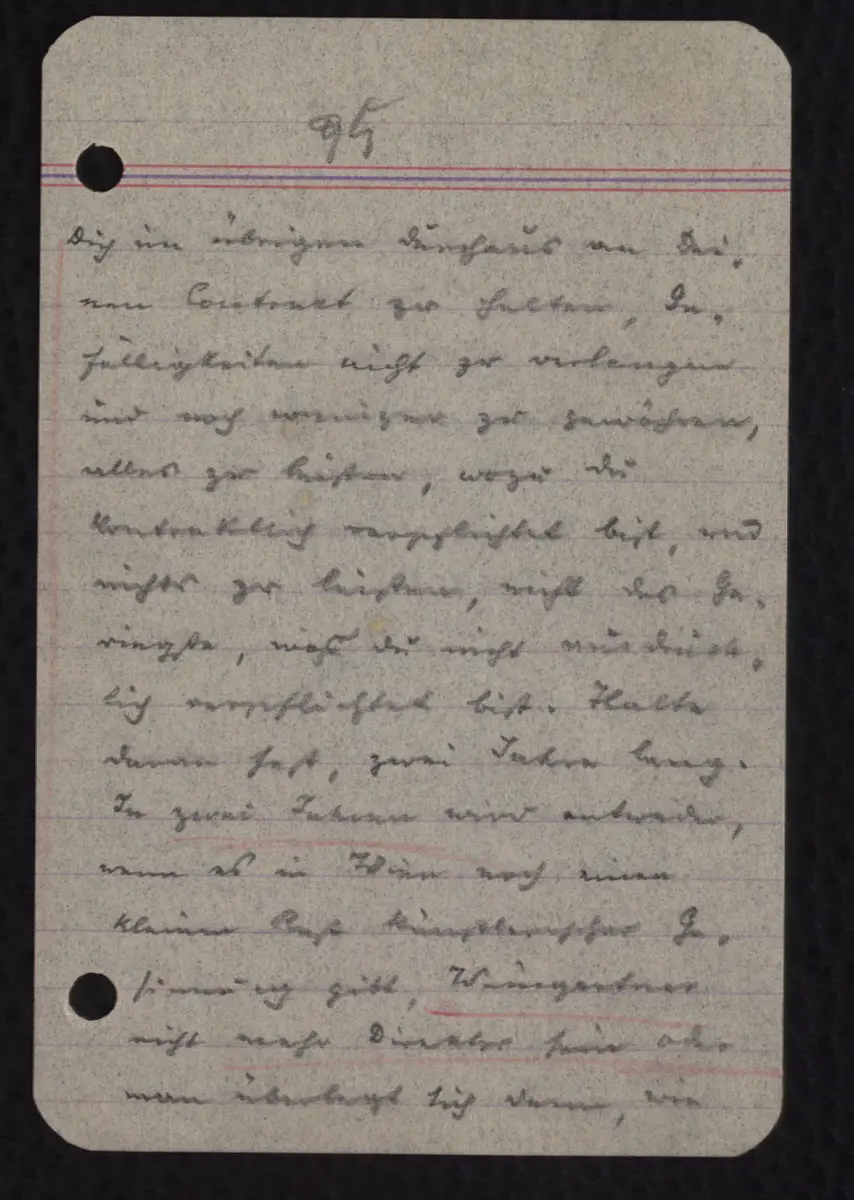 95
Dich im übrigen durchaus an Dei-
nen Contrakt zu halten, Ge-
fälligkeiten nicht zu verlangen
und noch weniger zu gewähren,
alles zu leisten, wozu Du
kontraktlich verpflichtet bist, und
nichts zu leisten, nicht das Ge-
ringste, was Du nicht ausdrück-
lich verpflichtet bist. Halte
daran fest, zwei Jahre lang.
In zwei Jahren wird entweder,
wenn es in Wien noch einen
kleinen Rest künstlerischer Ge-
sinnung gibt, Weingartner
nicht mehr Direktor sein oder
man überlegt sich dann, wie